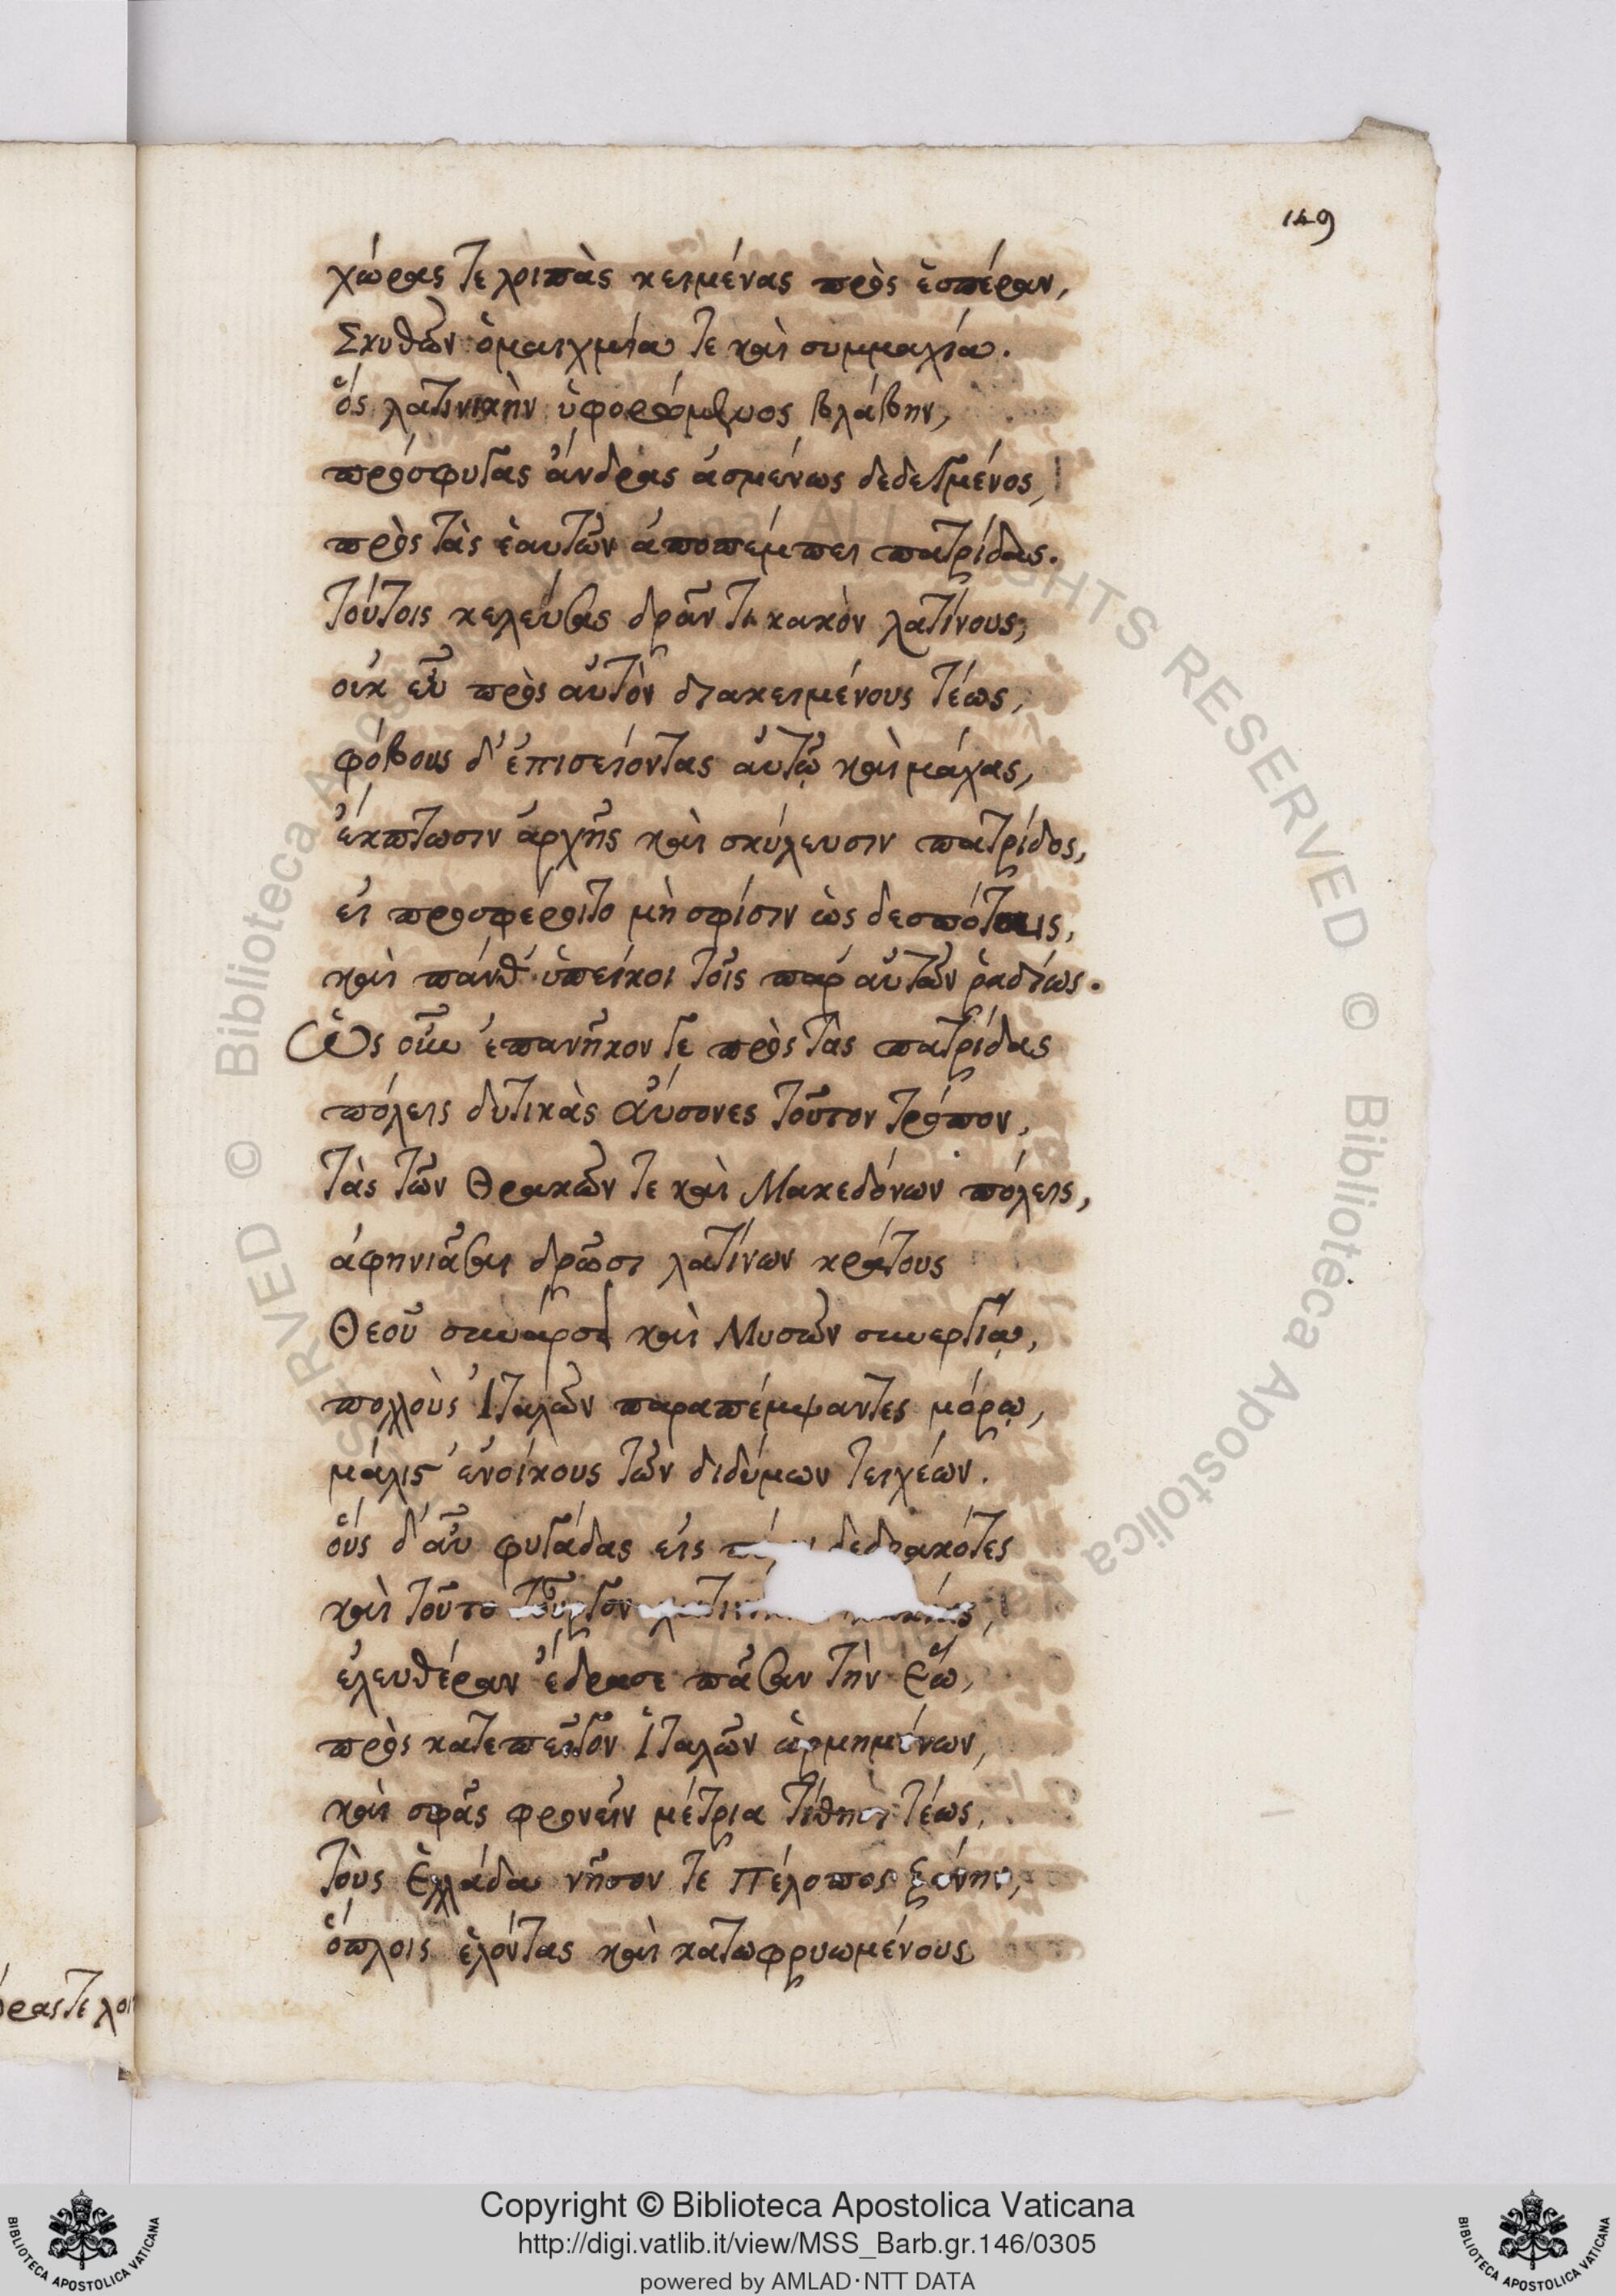 149
χώρας τε λοιπὰς κειμένας πρὸς ἑσπέραν,
Σκυθῶν ὁμαιχμία τε καὶ συμμαχία.
ὅς λατινικὴν ὑφορώμενος βλάβην,
πρόσφυγας ἄνδρας ἀσμένως δεδεγμένος,
πρὸς τὰς ἑαυτῶν ἀποπέμπει πατρίδας.
τούτοις κελεύσας δρᾶν τι κακὸν λατίνους,
οὐκ εὖ πρὸς αὐτὸν διακειμένους τέως,
φόβους δ' ἐπισείοντας αὐτῷ καὶ μάχας,
ἔκπτωσιν ἀρχῆς καὶ σκύλευσιν πατρίδος,
εἰ προσφέροιτο μὴ σφίσιν ὡς δεσπόταις,
καὶ πάνθ' ὑπείκοι τοῖς παρ' αὐτῶν ῥαδίως.
Ὡς οὖν ἐπανῆκόν γε πρὸς τὰς πατρίδας
πόλεις δυτικὰς αὔσονες τοῦτον τρόπον,
τὰς τῶν Θρακῶν τε καὶ Μακεδόνων πόλεις,
ἀφηνιᾶσαι δρῶσι λατίνων κράτους
Θεοῦ συνάρσει καὶ Μυσῶν συνεργίᾳ,
πολλοὺς Ἰταλῶν παραπέμψαντες μόρῳ,
μάλιστ' ἐνοίκους τῶν διδύμων τειχέων.
οὓς δ' αὖ φυγάδας εἰς δεδρακότες
καὶ τοῦτο τοὖργον
ἐλευθέραν ἔδρασε πᾶσαν τὴν ἕω,
πρὸς κατεπεῖγον Ἰταλῶν ὡρμημένων,
καὶ σφᾶς φρονεῖν μέτρια τίθησι τέως,
τοὺς Ἑλλάδα νῆσόν τε Πέλοπος ξένην,
ὅπλοις ἑλόντας καὶ κατωφρυωμένους
ρας τε λοι
Copyright © Biblioteca Apostolica Vaticana
http://digi.vatlib.it/view/MSS_Barb.gr.146/0305
powered by AMLAD·NTT DATA